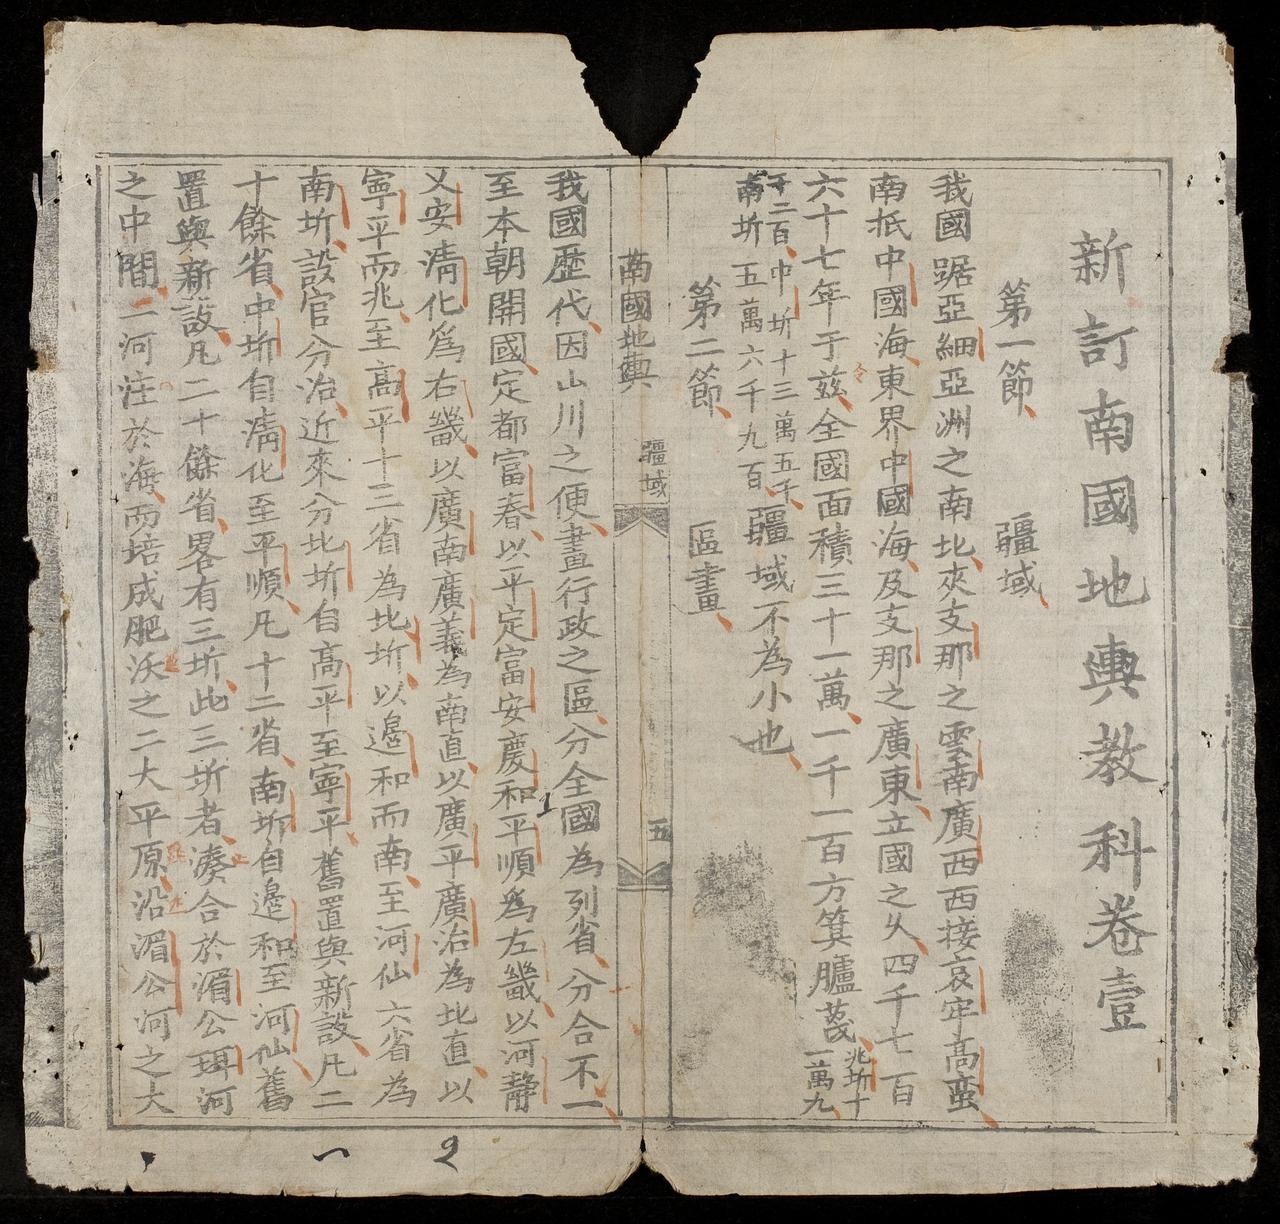 新訂南國地輿教科卷壹
第一節 疆域
我國踞亞細亞洲之南北夾支那之雲南廣西西接哀牢高蛮
南抵中國海東界中國海及支那之廣東立國之久四千七百
六十七年于兹全國面積三十一萬一千一百方箕臚蔑
北圻十
一萬九
千二百中圻十三萬五千
南圻五萬六千九百
疆域不為小也
第二節 區畫
南國地輿 疆域 五
我國歷代因山川之便畫行政之區分全國為列省分合不一
至本朝開國定都富春以平定富安慶和平順為左畿以河靜
乂安清化為右畿以廣南廣義為南直以廣平廣治為北直以
寧平而北至高平十三省為北圻以邉和而南至河仙六省為
南圻設官分治近來分北圻自高平至寧平舊置與新設凡二
十餘省中圻自清化至平順凡十二省南圻自邉和至河仙舊
置與新設凡二十餘省畧有三圻此三圻者湊合於湄公珥河
之中間二河注於海而培成肥沃之二大平原沿湄公河之大
一 2